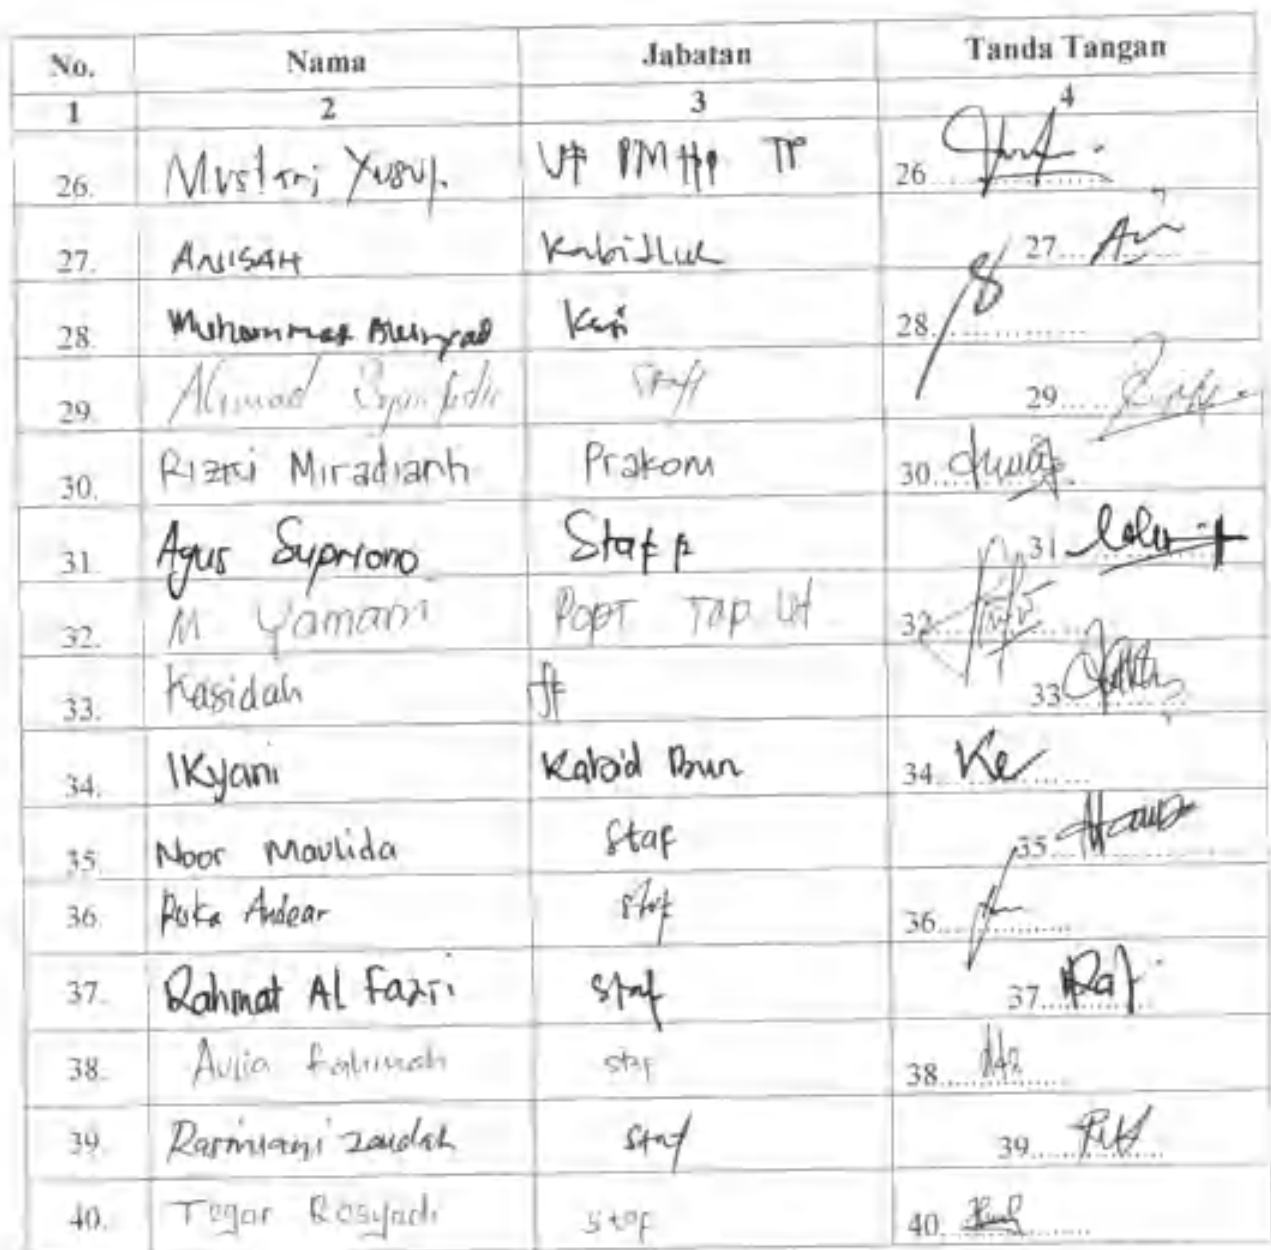 No. Nama Jabatan Tanda Tangan
1 2 3 4
26. Mustari Yusup. PMHP TP 26
27. ANISAH Kabidluh 27
28. Muhammad 28
29. Ahmad staff 29
30. Rizki Miradianti Prakom 30
31. Agus Supriono Staff 31
32. M Yamani POPT TAP. 32
33. Kasidah 33
34. IKyani Kabid Bun 34
35. Noor Maulida staf 35
36. Riska Andear staf 36
37. Rahmat AL Fazri staf 37
38. Aulia Fatimah staf 38
39. Rasmiani zaudah staf 39
40. Tegar Rosyadi staf 40